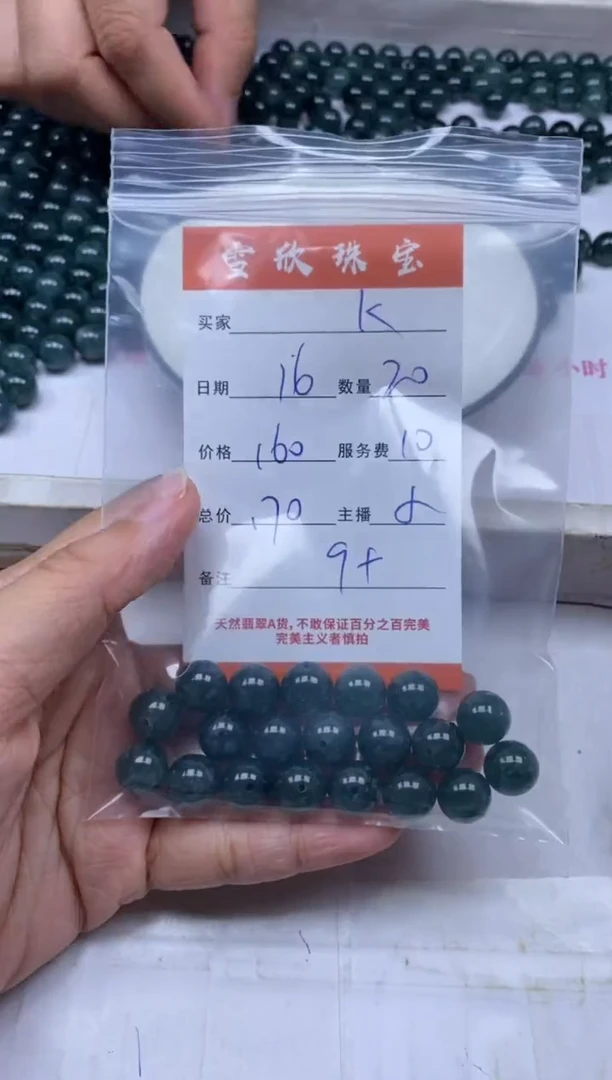 雪欣珠宝
买家 K
日期 16 数量 20
价格 160 服务费 10
总价 170 主播
备注 9+
天然翡翠A货，不敢保证百分之百完美
完美主义者慎拍
小时